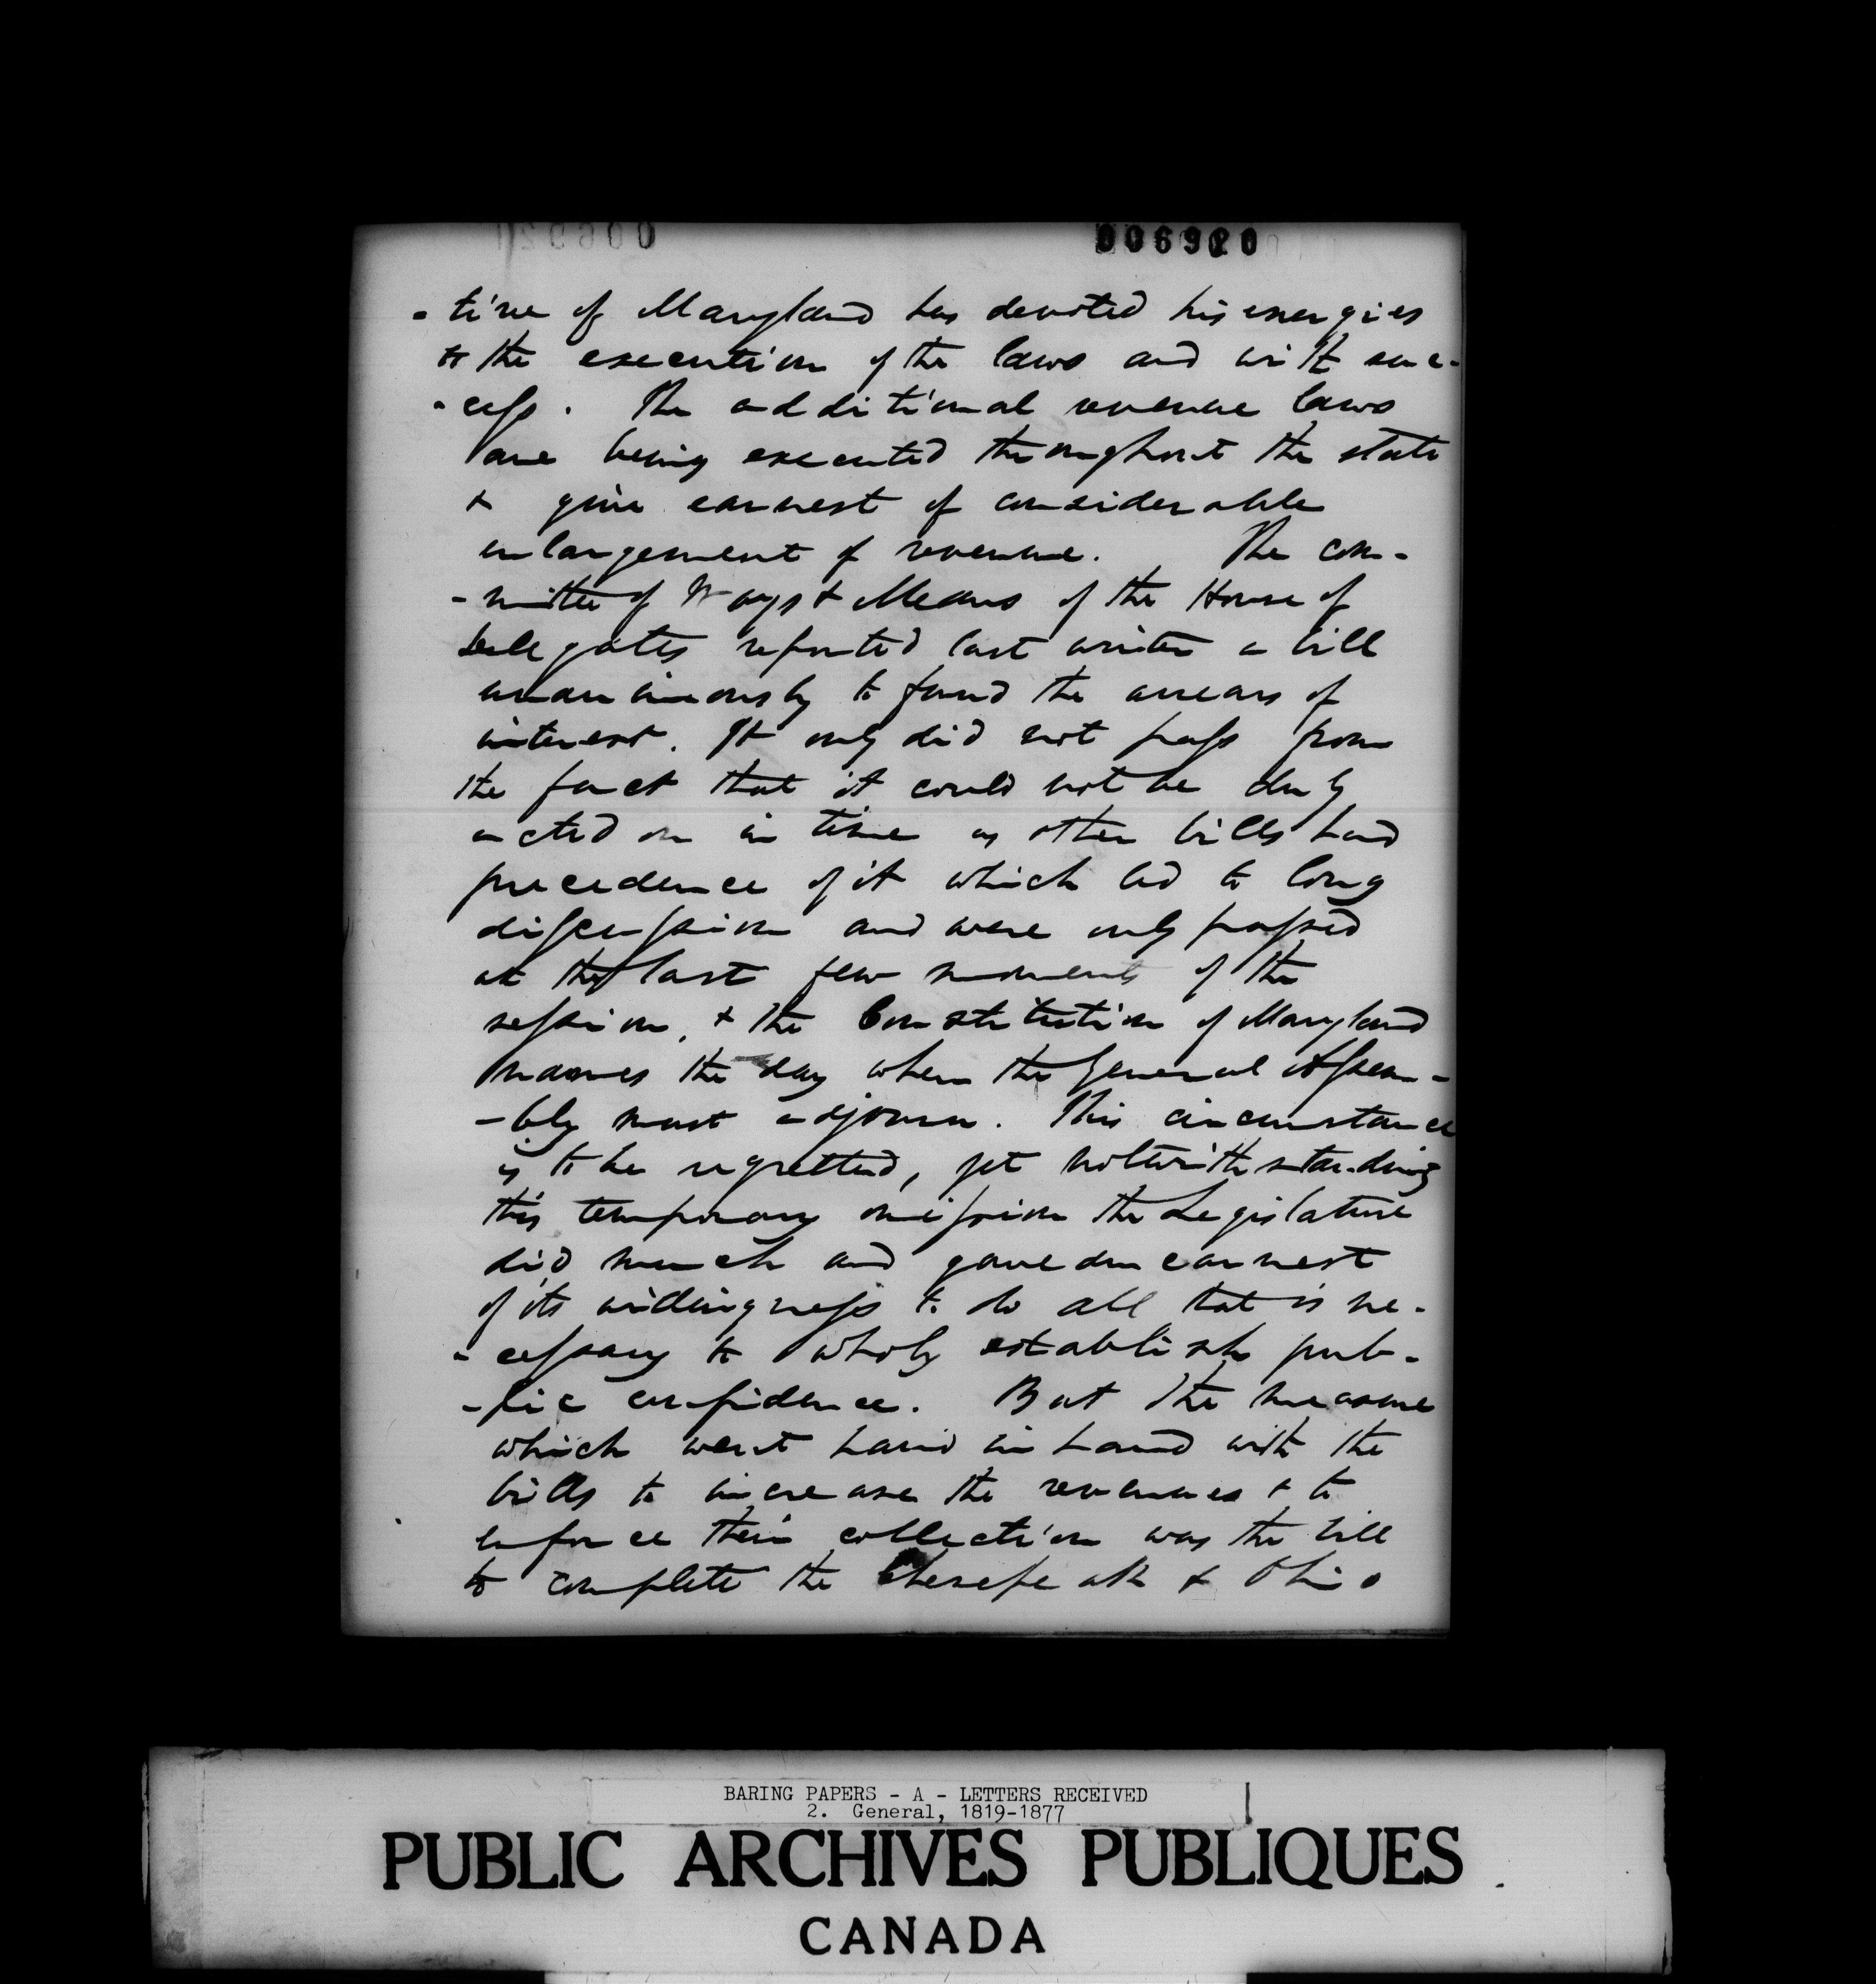 006920
-tive of Maryland has devoted his energies
to the execution of the laws and with suc-
-cess. The additional revenue laws
are being executed throughout the state
& give earnest of considerable
enlargement of revenue. The com-
-mittee of Ways & Means of the House of
Delegates reported last winter a bill
unanimously to fund the arrears of
interest. It only did not pass from
the fact that it could not be duly
acted on in time as other bills had
precedence of it which led to long
discussion and were only passed
at the last few moments of the
session, & the Constitution of Maryland
names the day when the General Assem-
-bly must adjourn. This circumstance
is to be regretted, yet notwithstanding
this temporary omission the Legislature
did much and gave an earnest
of its willingness to do all that is ne-
-cessary to wholy establish pub-
-lic confidence. But the measure
which went hand in hand with the
bills to increase the revenues & to
enforce their collection was the bill
to complete the Chesepeak & Ohio
BARING PAPERS - A - LETTERS RECEIVED
2. General, 1819-1877
PUBLIC ARCHIVES PUBLIQUES
CANADA